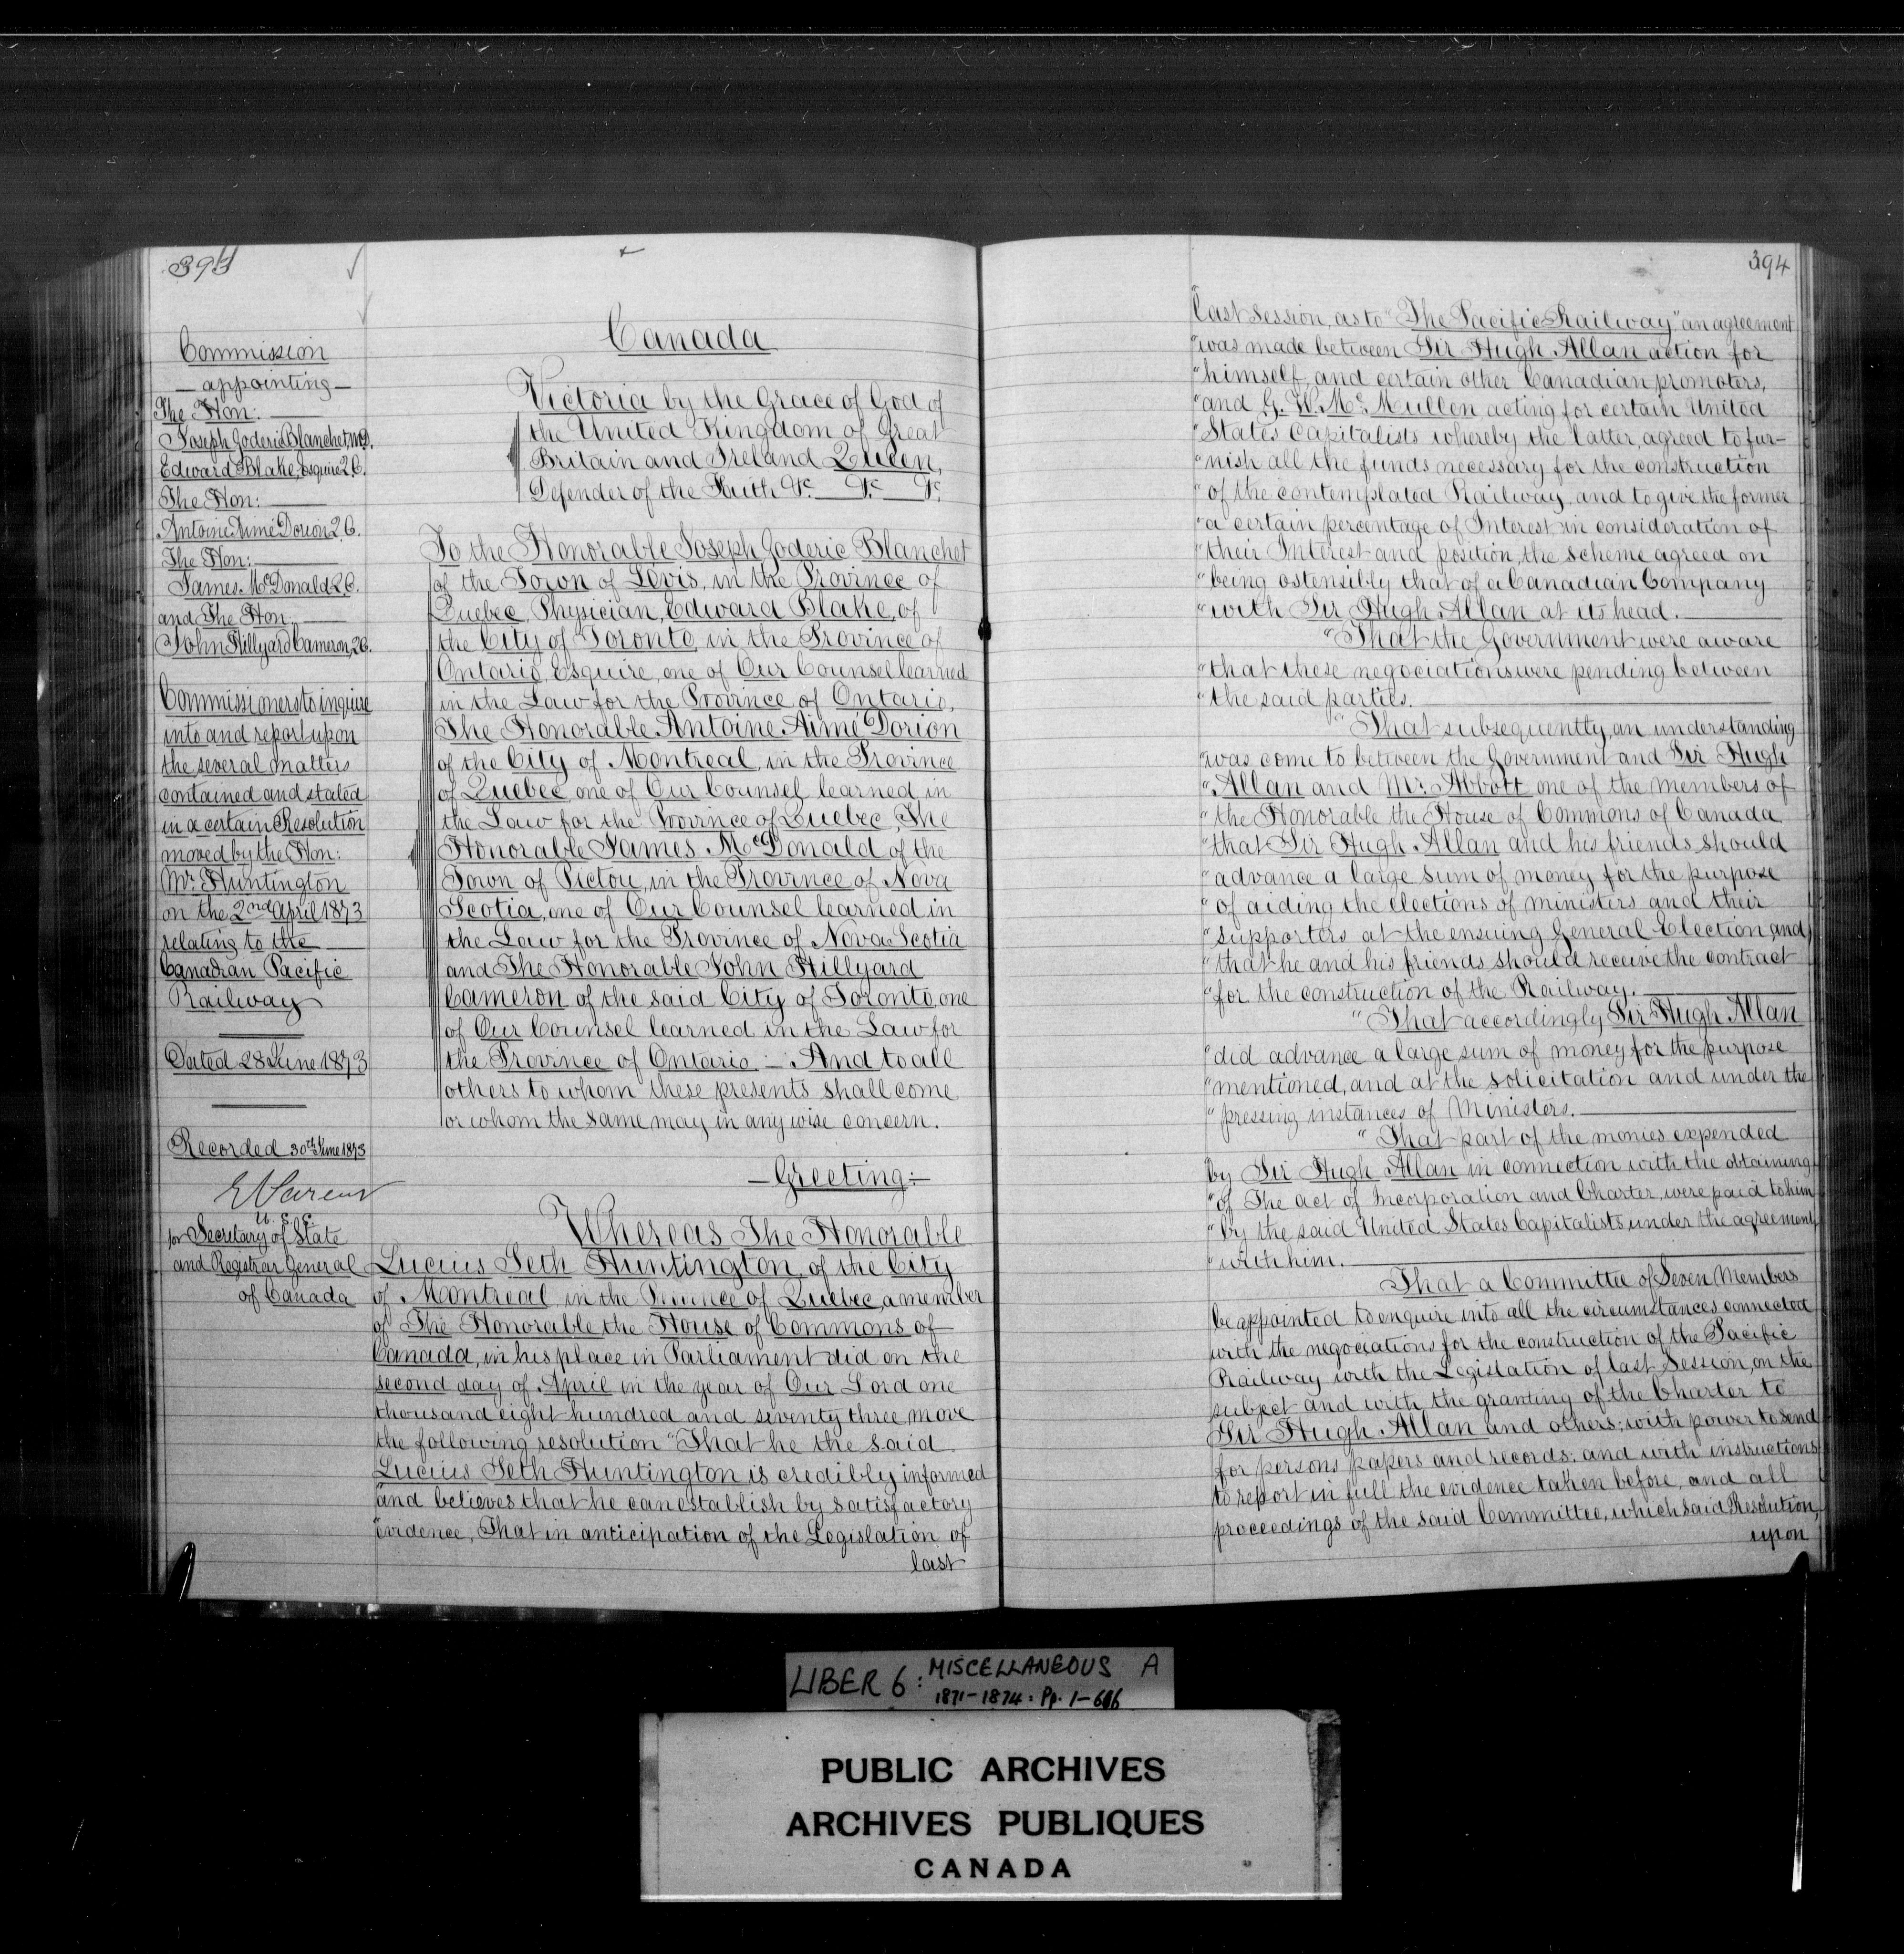 393
Commission
— appointing —
The Hon:
Joseph Goderic Blanchet, M.D.
Edward Blake, Esquire Q.C.
The Hon:
Antoine Aimé Dorion Q.C.
The Hon:
James McDonald Q.C.
and The Hon:
John Hillyard Cameron, Q.C.
Commissioners to inquire
into and report upon
the several matters
contained and stated
in a certain Resolution
moved by the Hon:
Mr. Huntington
on the 2nd April 1873
relating to the
Canadian Pacific
Railway
Dated 28 June 1873
Recorded 30th June 1873
U. S. S.
for Secretary of State
and Registrar General
of Canada
Canada
Victoria by the Grace of God of
the United Kingdom of Great
Britain and Ireland Queen,
Defender of the Faith &c. &c. &c.
To the Honorable Joseph Goderic Blanchet
of the Town of Levis, in the Province of
Quebec, Physician, Edward Blake, of
the City of Toronto, in the Province of
Ontario, Esquire, one of Our Counsel learned
in the Law for the Province of Ontario,
The Honorable Antoine Aimé Dorion
of the City of Montreal, in the Province
of Quebec one of Our Counsel learned in
the Law for the Province of Quebec, The
Honorable James McDonald of the
Town of Pictou, in the Province of Nova
Scotia, one of Our Counsel learned in
the Law for the Province of Nova Scotia
and The Honorable John Hillyard
Cameron of the said City of Toronto, one
of Our Counsel learned in the Law for
the Province of Ontario :— And to all
others to whom these presents shall come
or whom the same may in any wise concern.
— Greeting :—
Whereas The Honorable
Lucius Seth Huntington, of the City
of Montreal in the Province of Quebec, a member
of The Honorable the House of Commons of
Canada, in his place in Parliament did on the
second day of April in the year of Our Lord one
thousand eight hundred and seventy three move
the following resolution "That he the said
Lucius Seth Huntington is credibly informed
"and believes that he can establish by satisfactory
"evidence, That in anticipation of the Legislation of
last
394
"last session, as to "The Pacific Railway" an agreement
"was made between Sir Hugh Allan action for
"himself, and certain other Canadian promoters,
"and G. W. Mc.Mullen acting for certain United
"States Capitalists whereby the latter, agreed to fur-
"nish all the funds necessary for the construction
"of the contemplated Railway, and to give the former
"a certain percentage of Interest, in consideration of
"their Interest and position, the scheme agreed on
"being ostensibly that of a Canadian Company
"with Sir Hugh Allan at its head.
"That the Government were aware
"that these negociations were pending between
"the said parties.
"That subsequently, an understanding
"was come to between the Government and Sir Hugh
"Allan and Mr. Abbott one of the members of
"the Honorable the House of Commons of Canada,
"that Sir Hugh Allan and his friends should
"advance a large sum of money for the purpose
"of aiding the elections of ministers and their
"supporters at the ensuing General Election, and
"that he and his friends should receive the contract
"for the construction of the Railway.
"That accordingly Sir Hugh Allan
"did advance a large sum of money for the purpose
"mentioned, and at the solicitation and under the
"pressing instances of Ministers.
"That part of the monies expended
"by Sir Hugh Allan in connection with the obtaining
"of The Act of Incorporation and Charter, were paid to him
"by the said United States Capitalists under the agreement
"with him.
That a Committee of Seven Members
be appointed to enquire into all the circumstances connected
with the negociations for the construction of the Pacific
Railway with the Legislation of last Session, on the
subject and with the granting of the Charter to
Sir Hugh Allan and others; with power to send
for persons papers and records: and with instructions
to report in full the evidence taken before, and all
proceedings of the said Committee, which said Resolution,
upon
LIBER 6: MISCELLANEOUS A
1871-1874: Pp. 1-606
PUBLIC ARCHIVES
ARCHIVES PUBLIQUES
CANADA